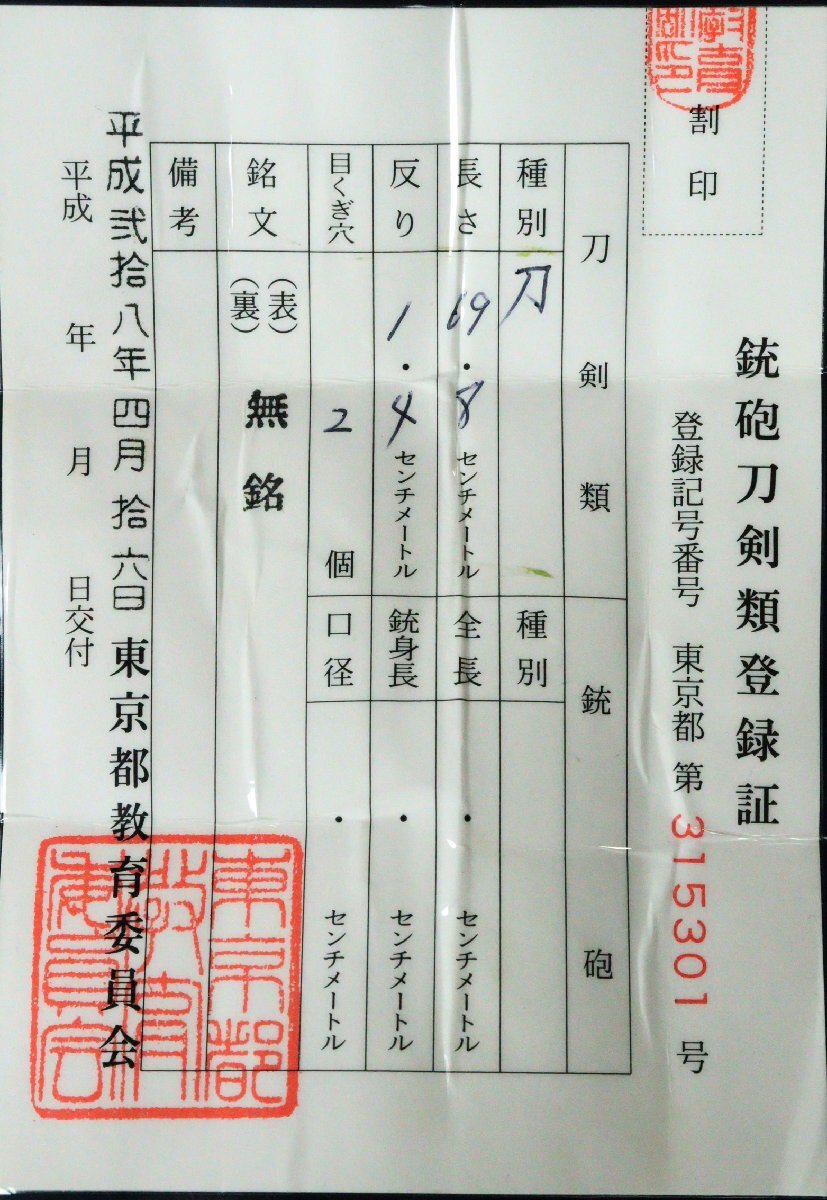 銃砲刀剣類登録証
割印
登録記号番号 東京都 第 315301 号
刀剣類 銃砲
種別 刀 種別
長さ 69.8 センチメートル 全長 ・ センチメートル
反り 1.4 センチメートル 銃身長 ・ センチメートル
目くぎ穴 2 個 口径 ・ センチメートル
銘文 (表) 無銘
(裏)
備考
平成弐拾八年四月拾六日 東京都教育委員会
平成 年 月 日交付
東京都
教育
委員会